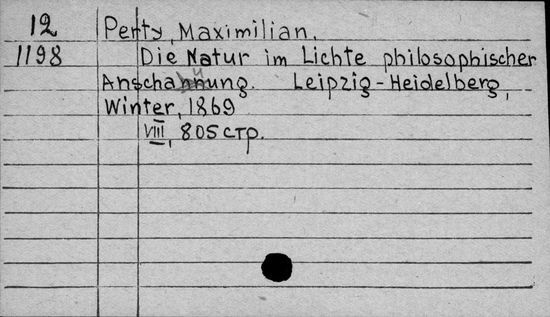 12 Perty, Maximilian.
1198 Die Natur im Lichte philosophischer
Anschauung. Leipzig-Heidelberg,
Winter, 1869
VIII, 805 стр.